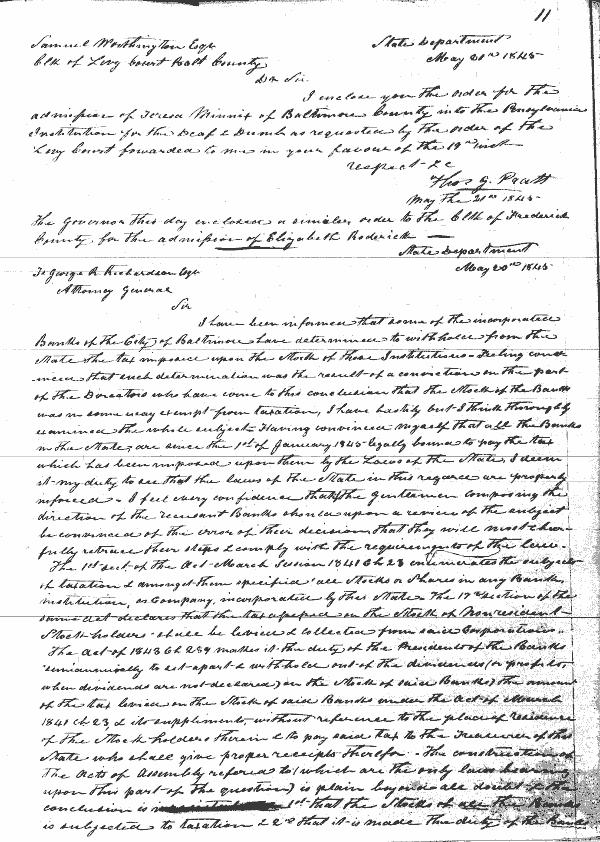 11
Samuel Worthington Esqr State Department
Clk of Levy Court Balt County May 20th 1845
Dr Sir
I enclose you the order for the
admission of Teresa Minnix of Baltimore County into the Pennsylvania
Institution for the Deaf & Dumb as requested by the order of the
Levy Court forwarded to me in your favour of the 19th inst
respect &c
Thos G. Pratt
May the 21st 1845
The Governor this day enclosed a similar order to the Clk of Frederick
County, for the admission of Elizabeth Roderick
State Department
To George R Richardson Esqr May 20th 1845
Attorney General
Sir
I have been informed that some of the incorporated
Banks of the City of Baltimore have determined to withhold from the
State the tax imposed upon the Stock of those Institutions - Feeling
that such determination was the result of a conviction on the part
of the Directors who have come to this conclusion that the Stock of the Banks
was in some way exempt from taxation, I have hastily but I think thoroughly
examined the whole subject. Having convinced myself that all the Banks
in the State, are since the 1st of January 1845 legally bound to pay the tax
which has been imposed upon them by the Laws of the State, I deem
it my duty to see that the laws of the State in this regard are properly
inforced - I feel every confidence that the Gentlemen composing the
direction of the recusant Banks should upon a review of the subject
be convinced of the error of their decision that they will most chear-
fully retrace their steps & comply with the requirements of the law.
The 1st sect of the Act March Session 1841 Ch 23 enumerates the subjects
of taxation & amongst them specified "all Stocks or Shares in any Bank,
institution, or Company, incorporated by this State. The 17th Section of the
same Act declares that the tax on the Stock of Nonresident
Stockholders shall be levied & collected from said Corporations.
The Act of 1843 Ch 289 makes it the duty of the Presidents of the Banks
semiannually to set apart & withhold out of the dividends (or profits,
when dividends are not declared) on the Stock of said Banks, the amount
of the tax levied on the Stock of said Banks under the Act of March
1841 Ch 23, & its supplements, without reference to the place of residence
of the Stock holders therein & to pay said tax to the Treasurer of this
State who shall give proper receipts therefor - The construction of
the Acts of Assembly refered to (which are the only laws bearing
upon this part of the question) is plain beyond all doubt & the
conclusion is 1st that the Stocks of all the Banks
is subjected to taxation & 2nd that it is made the duty of the Banks